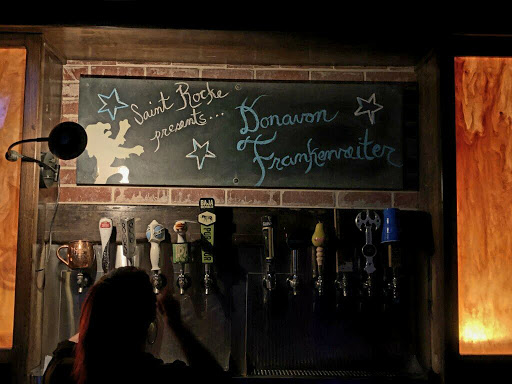 Saint Rocke
presents...
Donavon
Frankenreiter
BAJA